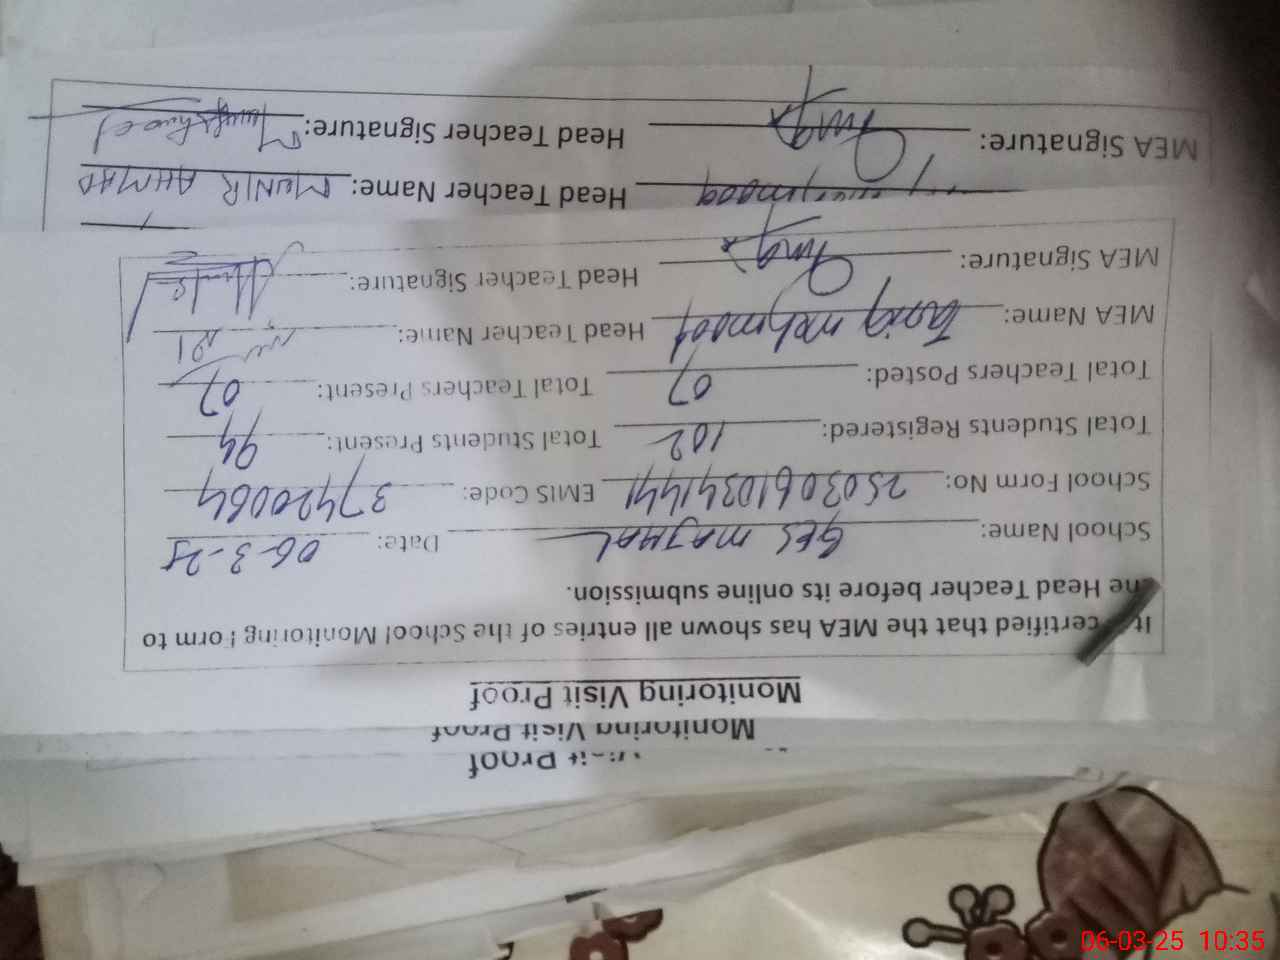 Proof
Monitoring Visit Proof
Monitoring Visit Proof
It is certified that the MEA has shown all entries of the School Monitoring Form to
the Head Teacher before its online submission.
School Name: GES MAJHAL Date: 06-3-25
School Form No: EMIS Code: 37420064
Total Students Registered: 102 Total Students Present: 94
Total Teachers Posted: 07 Total Teachers Present: 07
MEA Name: Tariq mehmood Head Teacher Name:
MEA Signature: Head Teacher Signature:
Head Teacher Name: MUNIR AHMAD
MEA Signature: Head Teacher Signature:
06-03-25 10:35